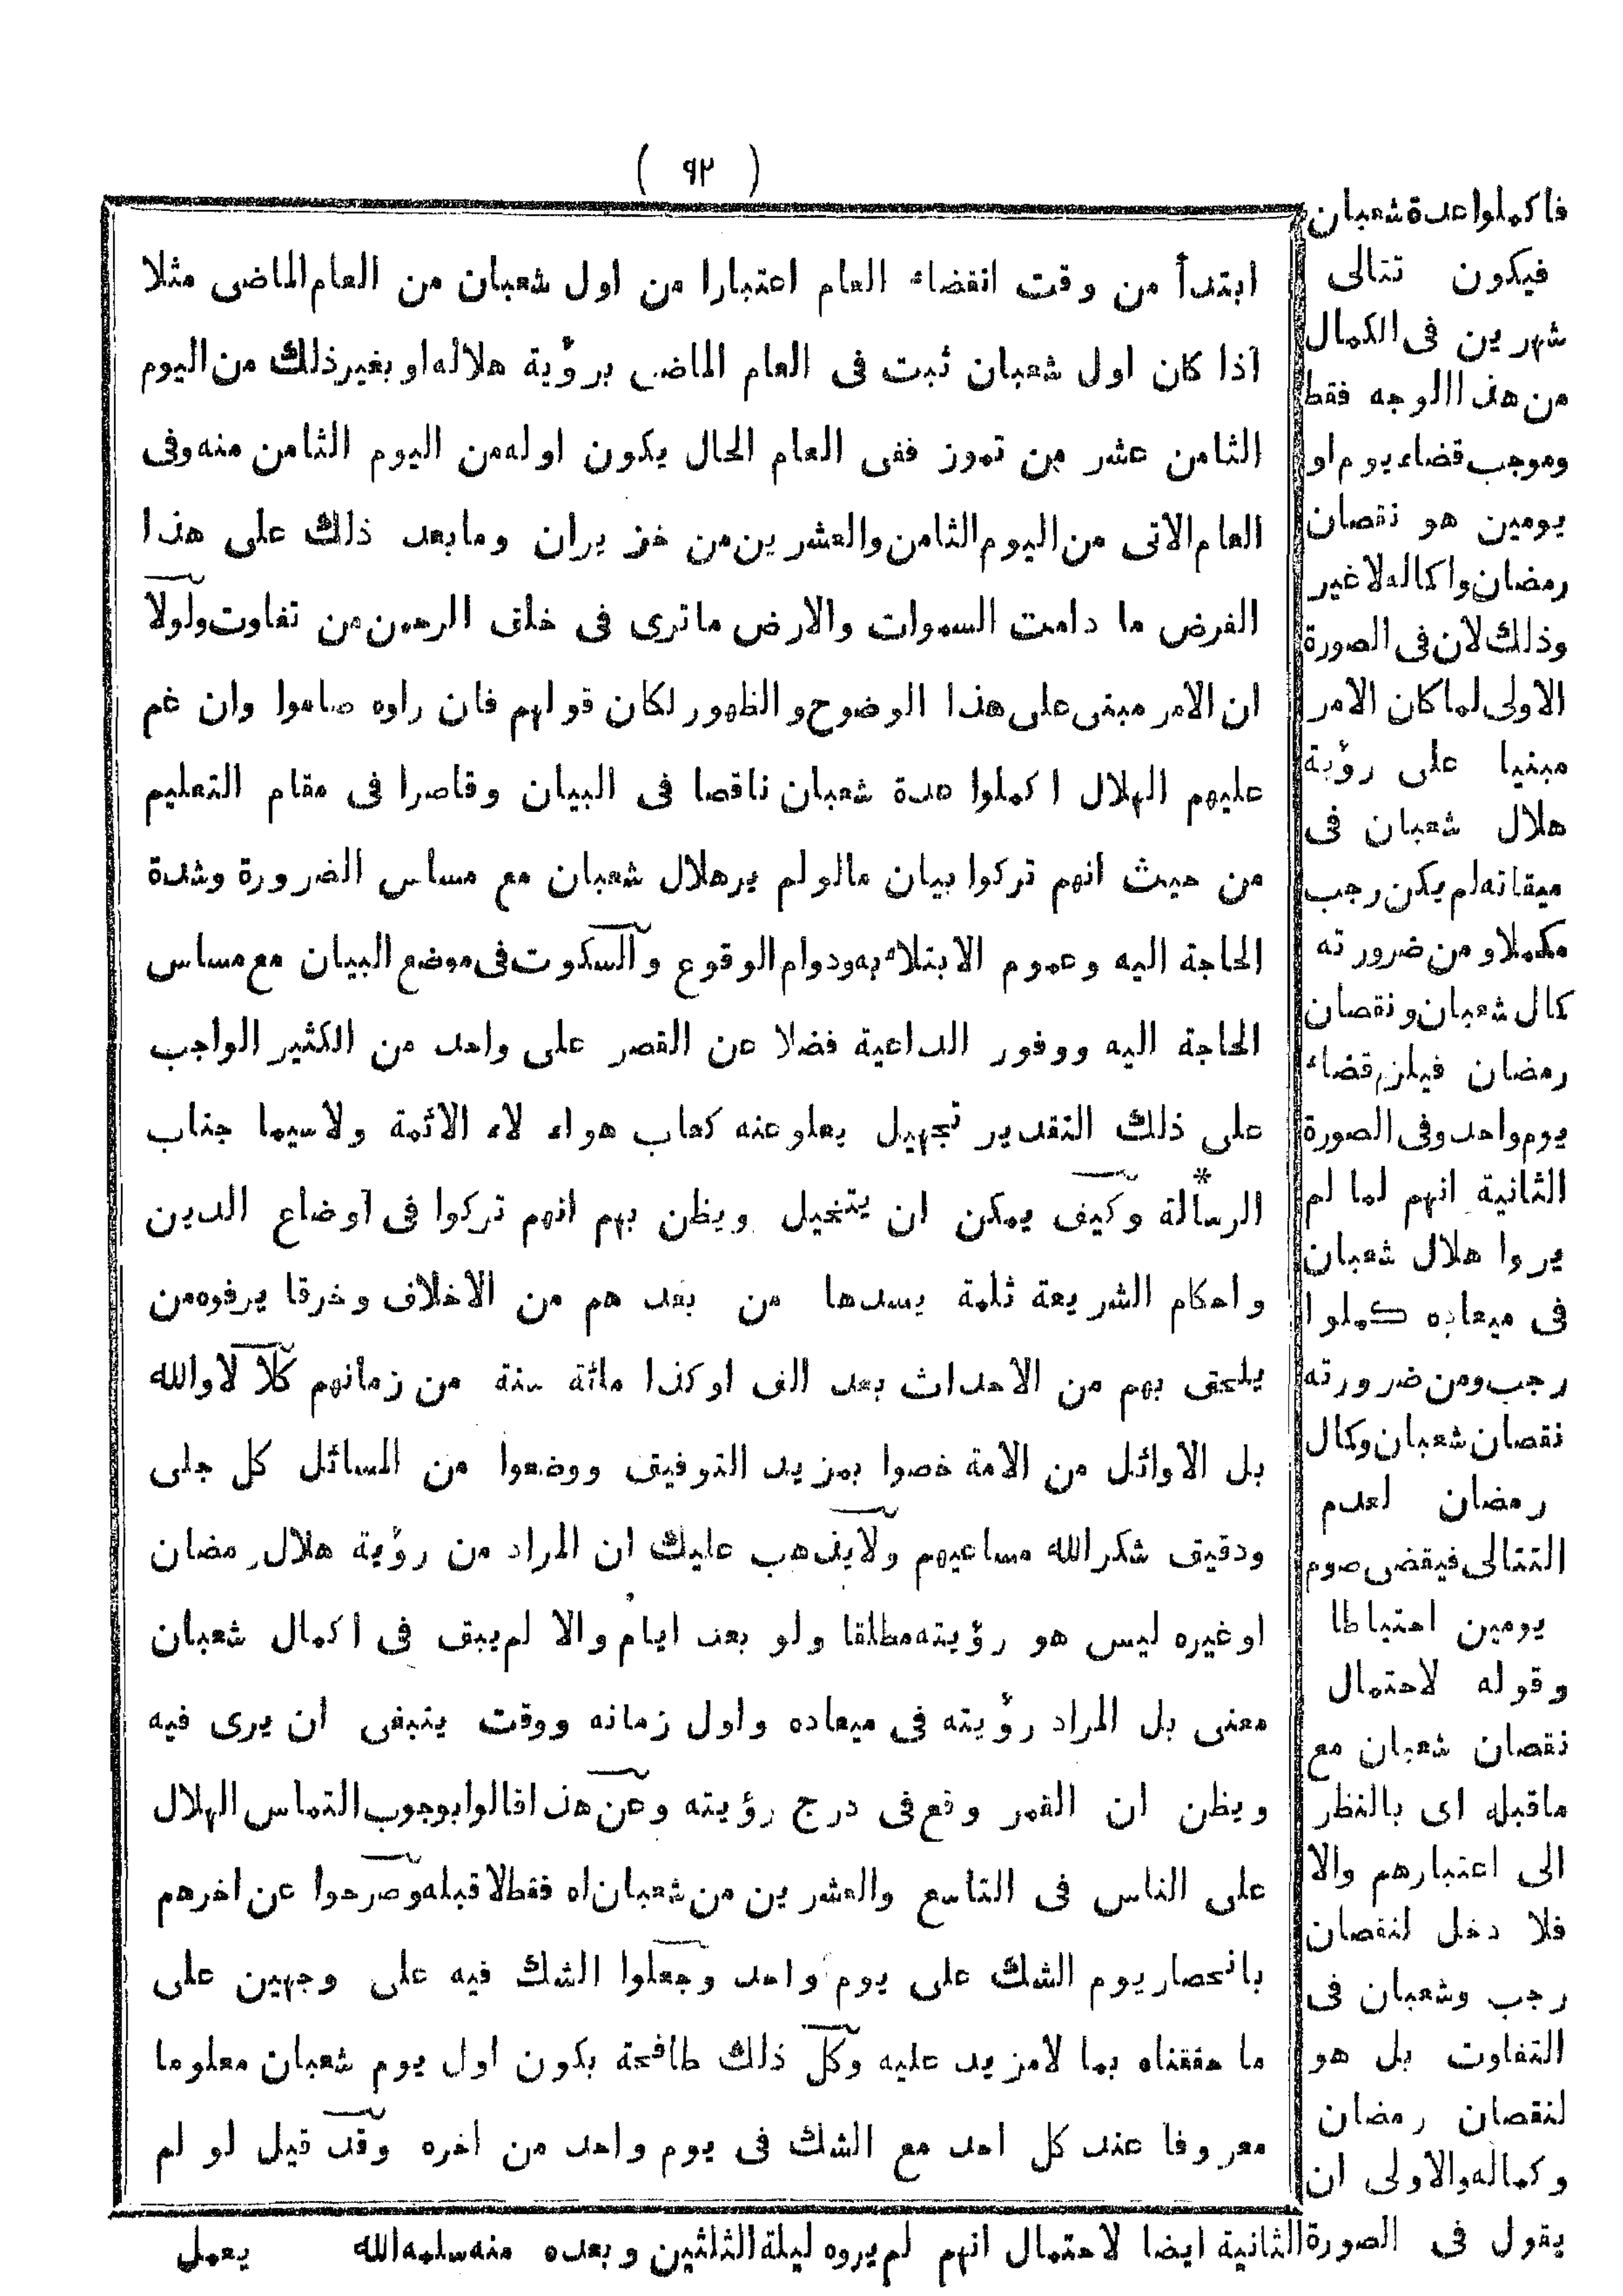 ( ٩٢ )
ابتدأ من وقت انقضاء العام اعتبارا من اول شعبان من العام الماضى مثلا
اذا كان اول شعبان ثبت فى العام الماضى برؤية هلاله او بغير ذلك من اليوم
الثامن عشر من تموز ففى العام الحال يكون اوله من اليوم الثامن منه وفى
العام الاتى من اليوم الثامن والعشرين من خزيران وما بعد ذلك على هذا
الفرض ما دامت السموات والارض ما ترى فى خلق الرحمن من تفاوت ولولا
ان الامر مبنى على هذا الوضوح والظهور لكان قولهم فان راوه صاموا وان غم
عليهم الهلال اكملوا عدة شعبان ناقصا فى البيان وقاصرا فى مقام التعليم
من حيث انهم تركوا بيان مالو لم ير هلال شعبان مع مساس الضرورة وشدة
الحاجة اليه وعموم الابتلاء به ودوام الوقوع والسكوت فى موضع البيان مع مساس
الحاجة اليه ووفور الداعية فضلا عن القصر على واحد من الكثير الواجب
على ذلك التقدير تجهيل يعلو عنه كعاب هواء لاء الائمة ولاسيما جناب
الرسالة * وكيف يمكن ان يتخيل ويظن بهم انهم تركوا فى اوضاع الدين
واحكام الشريعة ثلمة يسدها من بعد هم من الاخلاف وخرقا يرفوه من
يلحق بهم من الاحداث بعد الف او كذا مائة سنة من زمانهم كلا لا والله
بل الاوائل من الامة خصوا بمزيد التوفيق ووضعوا من المسائل كل جلى
ودقيق شكر الله مساعيهم ولا يذهب عليك ان المراد من رؤية هلال رمضان
او غيره ليس هو رؤيته مطلقا ولو بعد ايام والا لم يبق فى اكمال شعبان
معنى بل المراد رؤيته فى ميعاده واول زمانه ووقت ينبغى ان يرى فيه
ويظن ان القمر وقع فى درج رؤيته وعن هذا قالوا بوجوب التماس الهلال
على الناس فى التاسع والعشرين من شعبان اه فقط لا قبله وصرحوا عن اخرهم
بانحصار يوم الشك على يوم واحد وجعلوا الشك فيه على وجهين على
ما حققناه بما لا مزيد عليه وكل ذلك طافحة بكون اول يوم شعبان معلوما
معروفا عند كل احد مع الشك فى يوم واحد من اخره وقد قيل لو لم
فاكملوا عدة شعبان
فيكون تتالى
شهرين فى الكمال
من هذا الوجه فقط
وموجب قضاء يوم او
يومين هو نقصان
رمضان واكماله لا غير
وذلك لان فى الصورة
الاولى لما كان الامر
مبنيا على رؤية
هلال شعبان فى
ميقاته لم يكن رجب
مكملا ومن ضرورته
كمال شعبان ونقصان
رمضان فيلزم قضاء
يوم واحد وفى الصورة
الثانية انهم لما لم
يروا هلال شعبان
فى ميعاده كملوا
رجب ومن ضرورته
نقصان شعبان وكمال
رمضان لعدم
التتالى فيقضى صوم
يومين احتياطا
وقوله لاحتمال
نقصان شعبان مع
ماقبله اى بالنظر
الى اعتبارهم والا
فلا دخل لنقصان
رجب وشعبان فى
التفاوت بل هو
لنقصان رمضان
وكماله والاولى ان
يقول فى الصورة الثانية ايضا لاحتمال انهم لم يروه ليلة الثلثين وبعده منه سلمه الله
يعمل